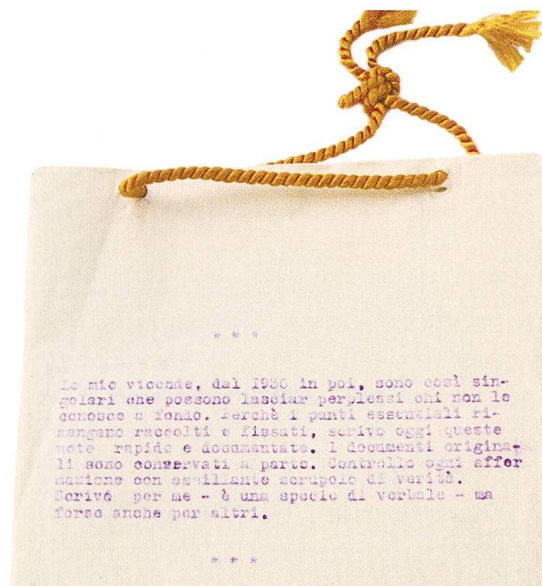 * * *
Le mie vicende, dal 1936 in poi, sono così sin-
golari che possono lasciar perplessi chi non le
conosce a fondo. Perchè i punti essenziali ri-
mangano raccolti e fissati, scrivo oggi queste
note rapide e documentate. I documenti origina-
li sono conservati a parte. Controllo ogni affer
mazione con assillante scrupolo di verità.
Scrivo per me - è una specie di verbale - ma
forse anche per altri.
* * *